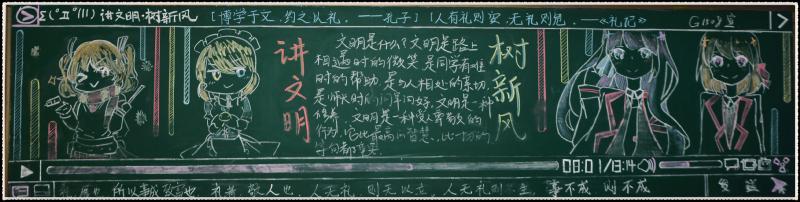 Σ(°Д°|||) 讲文明·树新风
[博学于文,约之以礼。——孔子]
[人有礼则安,无礼则危。——《礼记》
讲文明
文明是什么?文明是路上
相遇时的微笑,是同学有难
时的帮助,是与人相处的亲切,
是师长时的问好,文明是一种
修养,文明是一种受人尊敬的
行为,它比最高的智慧,比一切的
学问都重要
树新风
00:01/13:14
所以 敬人也 人无礼 则无以立 人无礼则不生 事不成 则不成